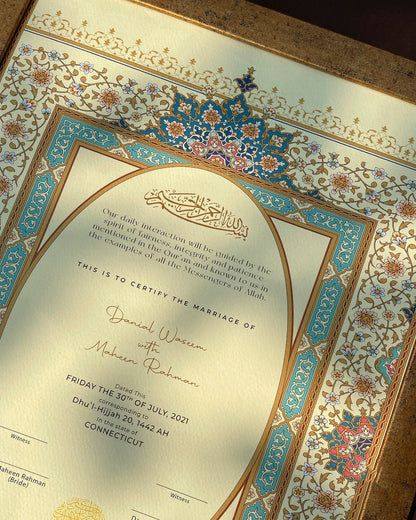 بسم الله الرحمن الرحيم
Our daily interaction will be guided by the
spirit of fairness, integrity and patience
mentioned in the Qur'an and known to us in
the examples of all the Messengers of Allah.
THIS IS TO CERTIFY THE MARRIAGE OF
Danial Waseem
with
Maheen Rahman
Dated This
FRIDAY THE 30TH OF JULY, 2021
corresponding to
Dhu'l-Hijjah 20, 1442 AH
in the state of
CONNECTICUT
Witness
Maheen Rahman
(Bride)
Witness